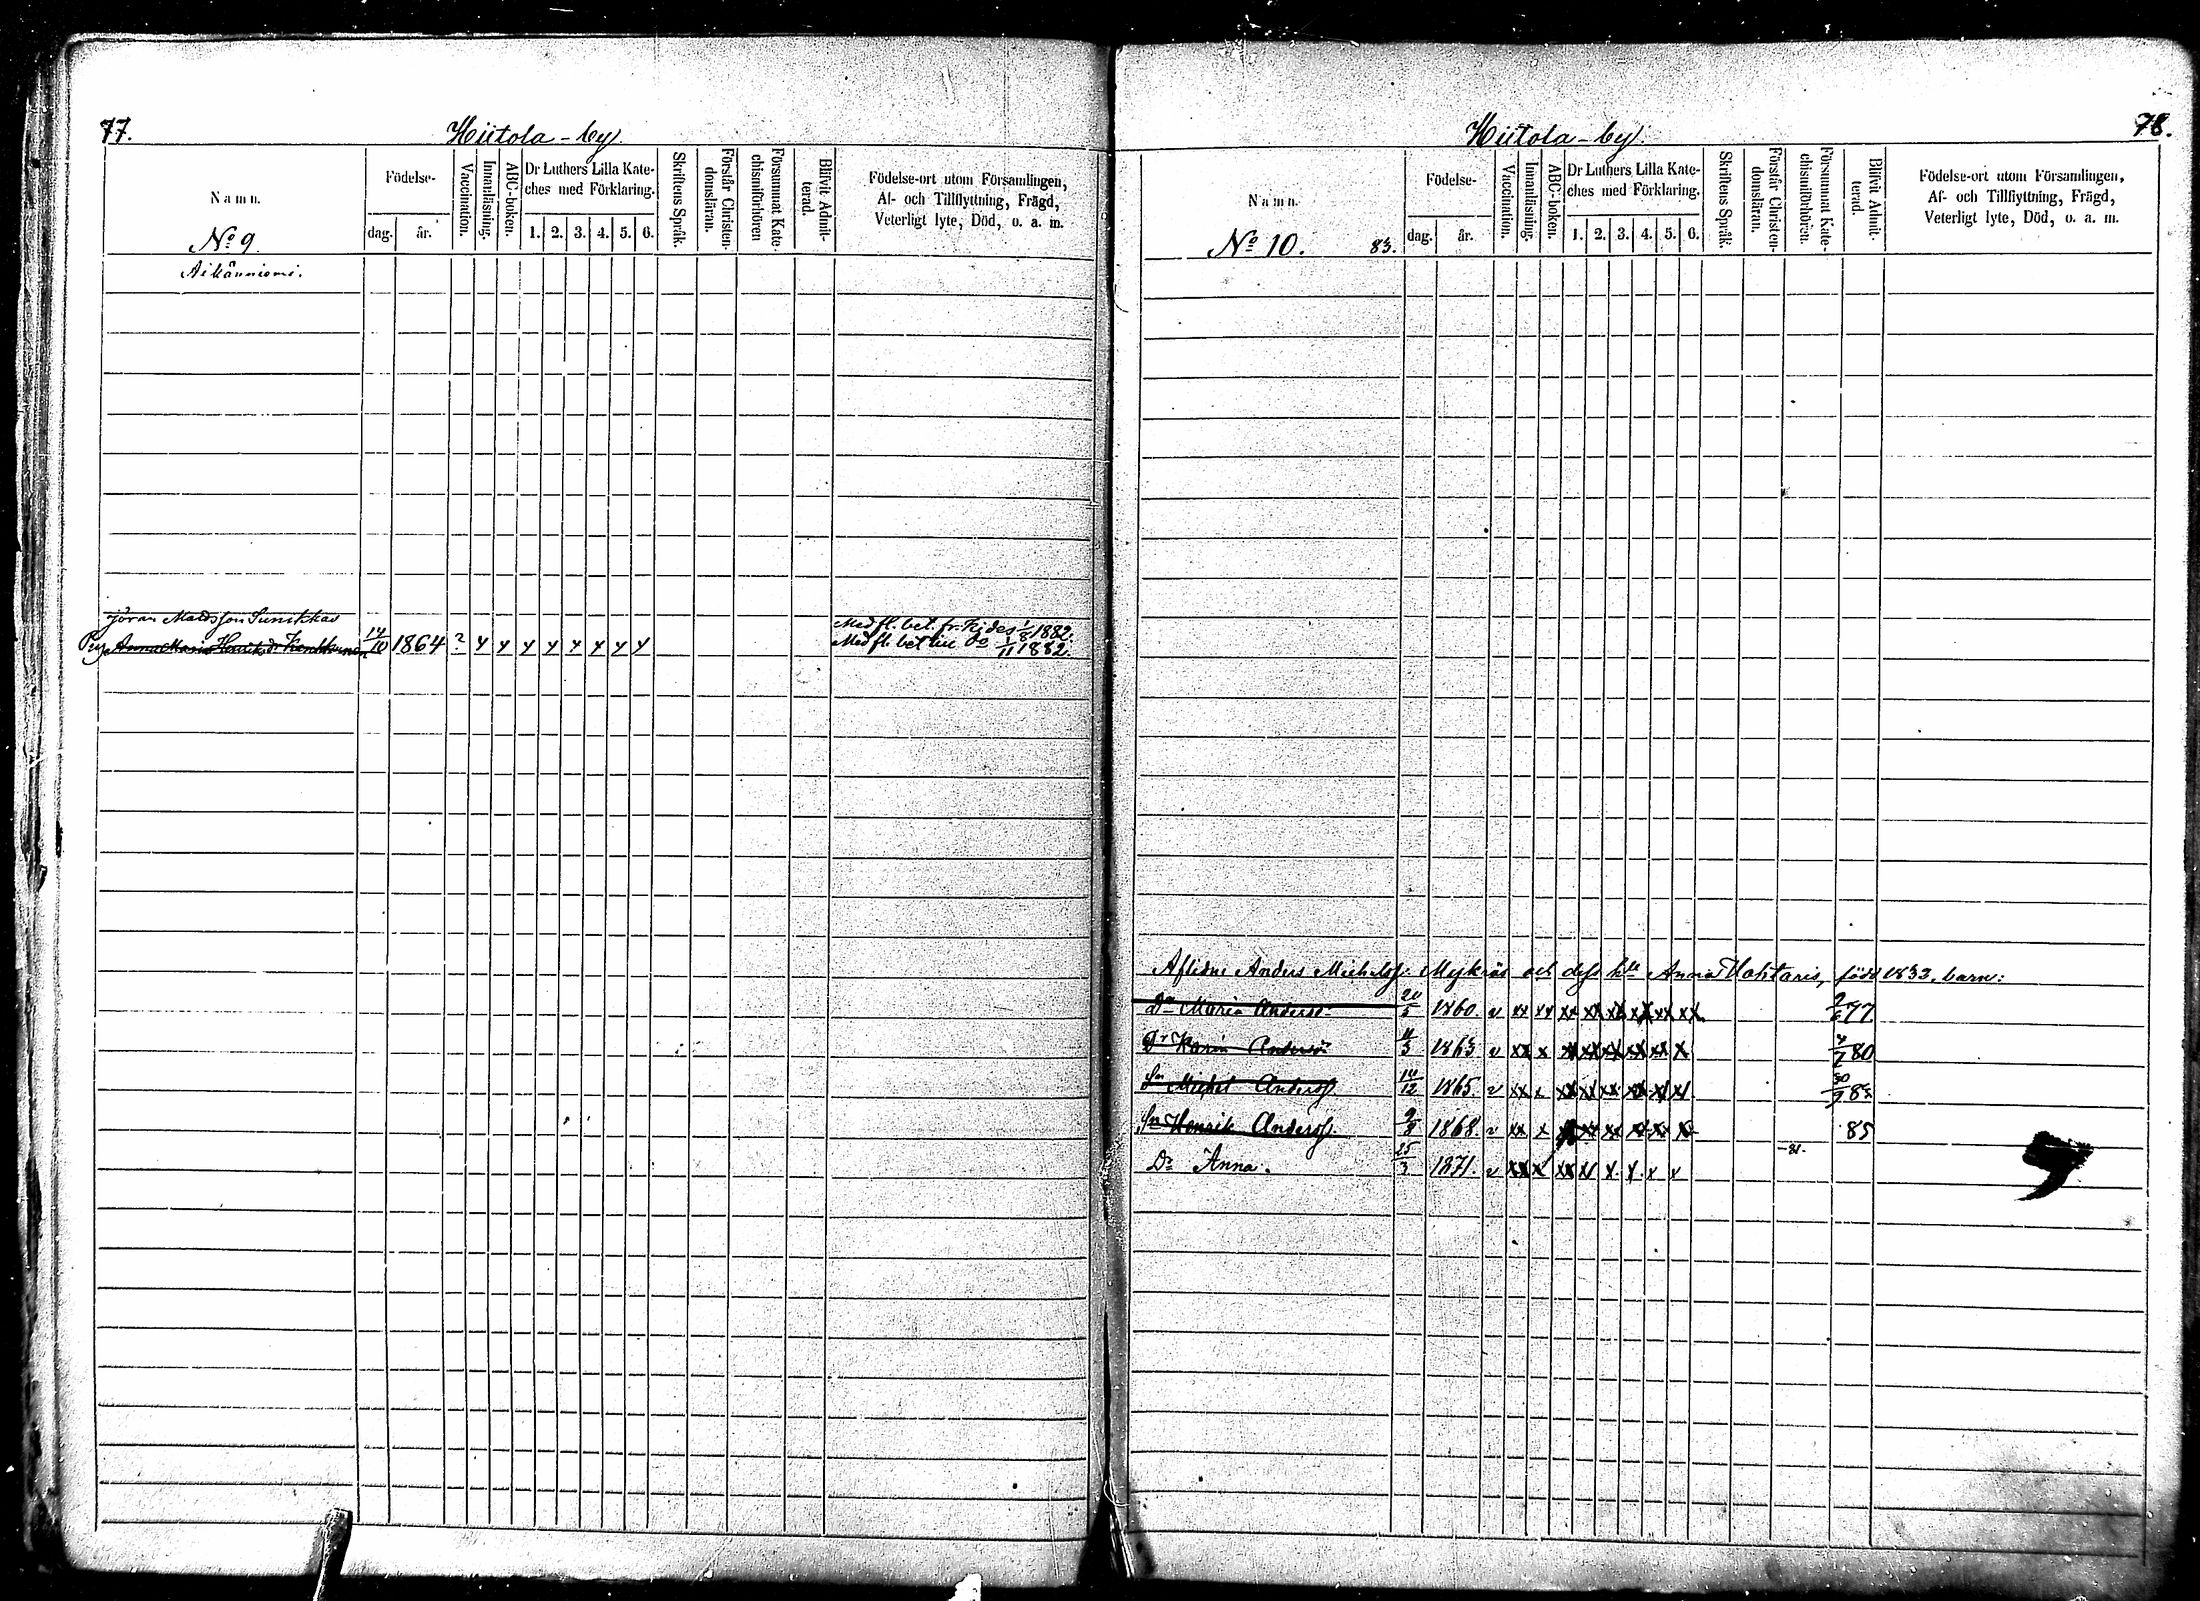 77.
Hiitola-by.
Namn.
Födelse-
dag. år.
Vaccination.
Innanläsning.
ABC-boken.
Dr Luthers Lilla Kate-
ches med Förklaring.
1. 2. 3. 4. 5. 6.
Skriftens Språk.
Förstår Christen-
domsläran.
Försummat Kate-
chismiförhören
Blifvit Admit-
terad.
Födelse-ort utom Församlingen,
Af- och Tillflyttning, Frägd,
Veterligt lyte, Död, o. a. m.
No 9.
Göran Matdsson
Med fl. bet. fr. Kides 1/8 1882.
Anna Maria Henriksdr 14/10 1864 ? x x x x x x x x
Med fl. bet till do 1/11 1882.
78.
Hiitola-by.
Namn.
Födelse-
dag. år.
Vaccination.
Innanläsning.
ABC-boken.
Dr Luthers Lilla Kate-
ches med Förklaring.
1. 2. 3. 4. 5. 6.
Skriftens Språk.
Förstår Christen-
domsläran.
Försummat Kate-
chismiförhören.
Blifvit Admit-
terad.
Födelse-ort utom Församlingen,
Af- och Tillflyttning, Frägd,
Veterligt lyte, Död, o. a. m.
No 10. 83.
Aflidne Anders Michelsf. Mykräs och dess h. Anna Hohtaris, född 1832, barn:
Dr Maria Andersd. 20/5 1860. v xx xx xx xx xx xx xx xx 77
Dr Karin Andersd. 11/3 1863 v xx x xx xx xx xx xx x 80
Sn Michel Andersf. 14/12 1865. v xx x xx xx xx xx xx xx
Sn Henrik Andersf. 9/8 1868. v xx x xx xx xx xx x 85
Dr Anna. 25/3 1871. v xx x xx xx x x x x -81.